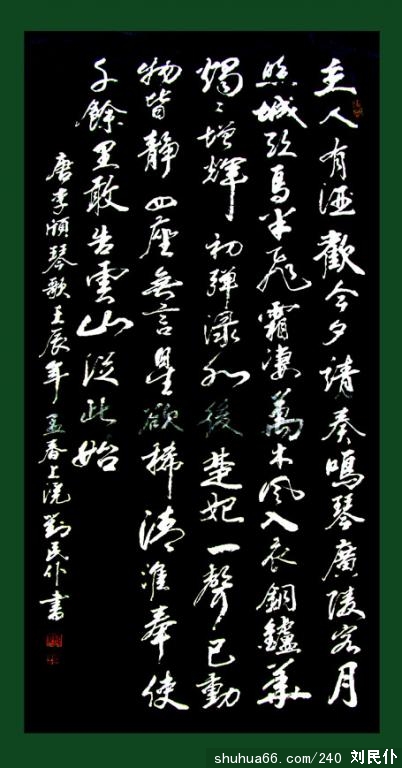 主人有酒歡今夕請奏鳴琴廣陵客月
照城頭烏半飛霜凄萬木風入衣銅鑪華
燭〻增輝初彈渌水後楚妃一聲已動
物皆靜四座無言星欲稀清淮奉使
千餘里敢告雲山從此始
唐李頎琴歌壬辰年孟春上浣劉民仆書
shuhua66.com/240 刘民仆